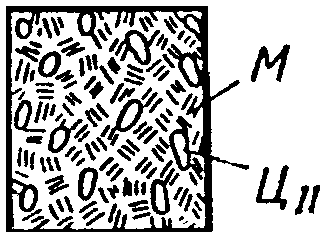 М
Ц II